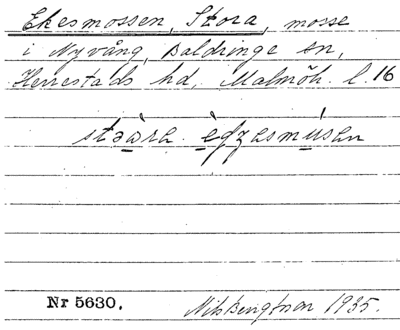 Ekesmossen, Stora, mosse
i Nyvång, Baldringe sn,
Herrestads hd, Malmöh. l. 16
Nr 5630. Nils Bengtson 1935.